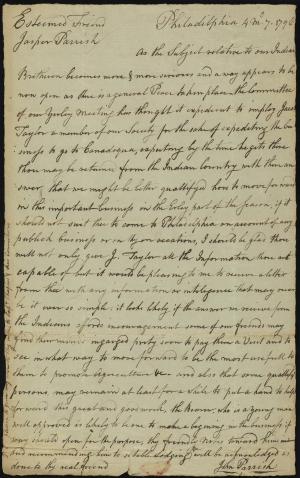 Philadelphia 4 mo 7. 1796
Esteemed Friend
Jasper Parrish
As the Subject relative to our Indian
Brethren becomes more & more serious and a way appears to be
now open as there is a general Peace to take place the Committee
of our Yearly Meeting has thought it expedient to imploy
Taylor a member of our Society for the sake of expediting the bu
siness to go to Canadaqua, expecting by the time he gets there
thou may be returned from the Indian Country with their an
swer, that we might be better qualifyed how to move forward
in this important business in the Early part of the season, if it
should not suit thee to come to Philadelphia on account of any
publick business or on thy own vocations, I should be glad thou
will not only give J. Taylor all the Information thou art
capable of but it would be pleasing to me to receive a letter
from thee with any information or intelegence that may ever
be it ever so simple. it looks likely if the answer we receive from
the Indians afords encouragement some of our friends may
find their minds ingaged pretty soon to pay them a Visit and to
see in what way to move forward to be the most usefull to
them to promote Agriculture &c and also that some qualify'd
persons may remain at least for a while to put a hand to help
forward this great and good work, the bearer, who is a young man
well approved is likely to be one to make a begining in the business if
way should open for the purpose, thy friendly Notice toward him
and recommending him to sutable Lodging will be acknowledged as
done to thy real friend
John Parrish